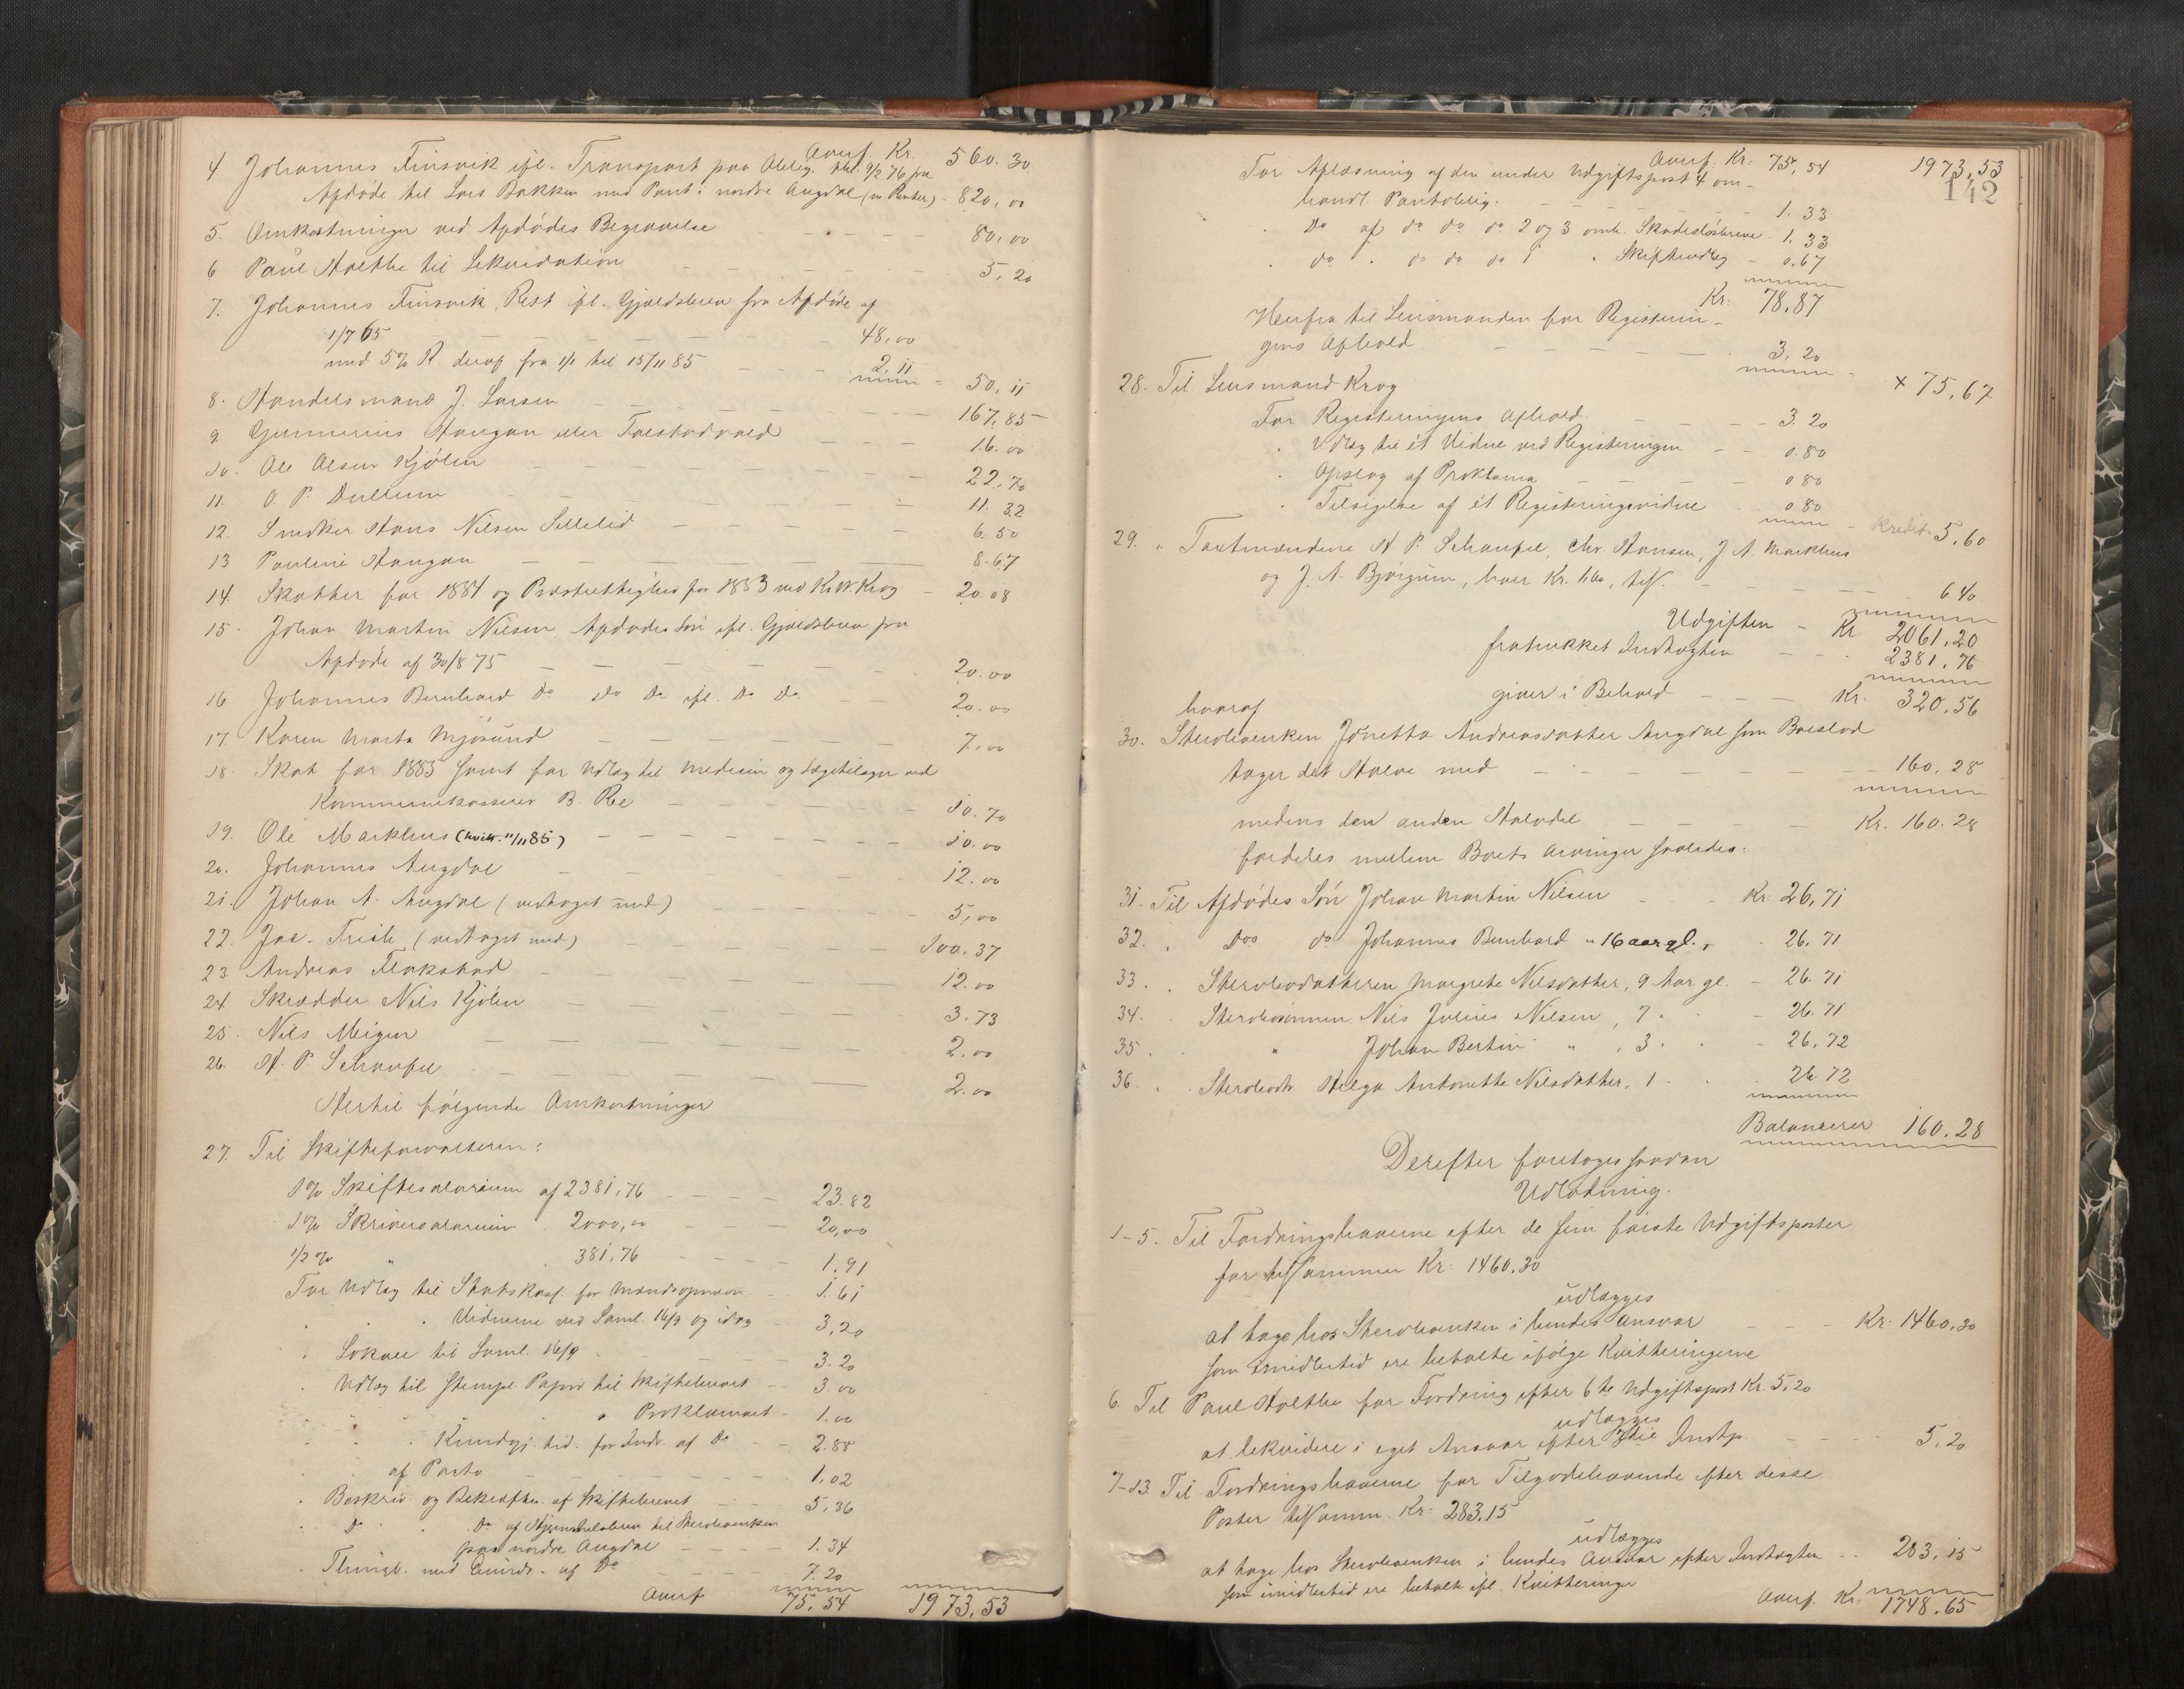 Overf. Kr. 560.30
4 Johannes Finsvik ifl. Transport paa Oblig. dat. 9/2 76 fra
Afdøde til Lars Bakken med Pant i nordre Augdal (m. Renter) 820,00
5. Omkostninger ved Afdødes Begravelse 80,00
6 Paul Holthe til Lekvidation 5,20
7. Johannes Finsvik, Rest ifl. Gjældsbrev fra Afdøde af
1/7 65 48,00
med 5% R. deraf fra 1/1 til 15/11 85 2,11 50,11
8. Handelsmand J. Larsen 167,85
9 Gunnerius Haugan eller Falstadvald 16.00
10. Ole Olsen Kjølen 22,70
11. O. P. Dullum 11.32
12. Snedker Hans Nilsen Sillelid 6.50
13 Pauline Haugan 8.67
14. Skatter for 1884 og Præsterettighed for 1883 ved K. W. Krog 20.08
15. Johan Martin Nilsen Afdødes Søn ifl. Gjældsbrev fra
Afdøde af 30/8 75 20.00
16 Johannes Bernhard Do Do Do ifl. Do Do 20.00
17. Karen Marta Mjøsund 7,00
18. Skat for 1885 samt for Udlæg til Medicin og Lægetilsyn ved
Kommunekasserer B. Ree 10.70
19. Ole Markhus (kvitt. 11/11 85) 10.00
20. Johannes Augdal 12.00
21. Johan A. Augdal (vedtaget med) 5,00
22. Jac. Frisli (vedtaget med) 100.37
23. Andreas Flakstad 12.00
24 Skrædder Nils Kjølen 3.73
25. Nils Meigun 2.00
26. H. P. Schanfel 2.00
Hertil følgende Omkostninger
27. Til Skifteforvalteren:
1% Skiftesalarium af 2381,76 23.82
1% Skriversalarium . 2000,00 20,00
1/2% " . 381.76 1.91
For Udlæg til Statskass. for Mændsopnævn. 1.61
. . Vidnerne ved Saml. 16/9 og idag 3,20
. Lokale til Saml. 16/9 3.20
. Udlæg til Stempl. Papir til Skiftebrevet 3.00
. . . . . Proklamaet 1.00
. . . Kundgj. tid. for Indr. af Do 2.88
. . af Porto 1,02
. Beskriv. og Bekræftn. af Skiftebrevet 5,36
. Do . Do af Hjemmelsbrev til Sterboenken
paa nordre Augdal 1.34
. Thingl. med Grundb. af Do 7.20
Overf. 75,54 1973,53
142
Overf. Kr. 75,54 1973,53
For Aflæsning af den under Udgiftspost 4 om-
handl. Pantoblig. 1.33
. Do af do do do 2 og 3 omh. Skadesløsbreve 1.33
. do . do do do 1 . Skifteudlæg 0.67
Kr. 78,87
Herfra til Lensmanden for Registerin-
gens Afhold 3,20
x 75,67
28. Til Lensmand Krog
For Registeringens Afhold 3.20
. Udlæg til et Vidne ved Registeringen 0.80
. Opslag af Proklama 0 80
. Tilsigelse af et Registeringsvidne 0.80
Kredit 5,60
29. " Taxtmændene H. P. Schanfel, Chr. Hansen, J. A. Markhus
og J. A. Bjørgum, hver Kr. 1.60, tils. 6.40
Udgiften Kr 2061,20
fratrukket Indtægten 2381,76
giver i Behold Kr. 320,56
hvoraf
30. Sterboenken Jonetta Andreasdatter Augdal som Boeslod
tager det Halve med 160,28
medens den anden Halvdel Kr. 160.28
fordeles mellem Boets Arvinger saaledes:
31. Til Afdødes Søn Johan Martin Nilsen Kr. 26,71
32. . Dos do Johannes Bernhard " 16 aar gl. , 26.71
33. . Sterbodatteren Margrete Nilsdatter, 9 Aar gl. 26.71
34. . Sterbosønnen Nils Julius Nilsen, 7 . 26.71
35. . " Johan Bertin " , 3 . 26,72
36. . Sterbodtr Helga Antonette Nilsdatter, 1 . 26.72
Balancerer 160.28
Derefter foretoges saadan
Udlodning.
1-5. Til Fordringshaverne efter de fem første Udgiftsposter
for tilsammen Kr. 1460.30
udlægges
at tage hos Sterboenken i hendes Ansvar Kr. 1460,30
som imidlertid ere betalte ifølge Kvitteringerne
6. Til Paul Holthe for Fordring efter 6te Udgiftspost Kr. 5,20
udlægges
at lekvidere i eget Ansvar efter Indtp. 5,20
7-13. Til Fordringshaverne for Tilgodehavende efter disse
Poster tilsamm. Kr. 283.15
udlægges
at tage hos Sterboenken i hendes Ansvar efter Indtægten 283,15
som imidlertid ere betalt ifl. Kvitteringer
Overf. Kr. 1748.65